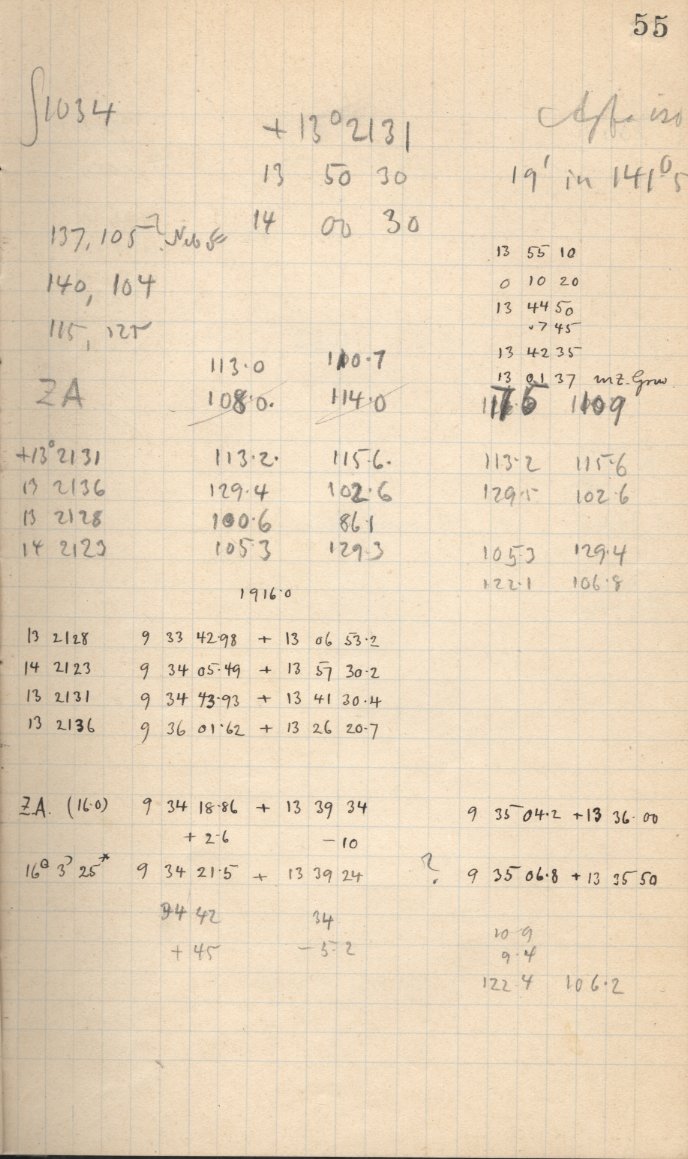 55
∫1034
+13° 2131
13 50 30
14 00 30
19' in 141°5
137, 105
140, 104
115, 125
13 55 10
0 10 20
13 44 50
13 42 35
13 01 37 m.z. Grw.
113.0 110.7
ZA 108.0. 114.0 109
+13° 2131 113.2. 115.6. 113.2 115.6
13 2136 129.4 102.6 129.5 102.6
13 2128 100.6 86.1
14 2123 105.3 129.3 105.3 129.4
122.1 106.8
1916.0
13 2128 9 33 42.98 + 13 06 53.2
14 2123 9 34 05.49 + 13 57 30.2
13 2131 9 34 43.93 + 13 41 30.4
13 2136 9 36 01.62 + 13 26 20.7
Z.A. (16.0) 9 34 18.86 + 13 39 34 9 35 04.2 + 13 36.00
+ 2.6 - 10
16a 3 25* 9 34 21.5 + 13 39 24 ? 9 35 06.8 + 13 35 50
34 42 34
+ 45 - 3.2
10.9
9.4
122.4 106.2